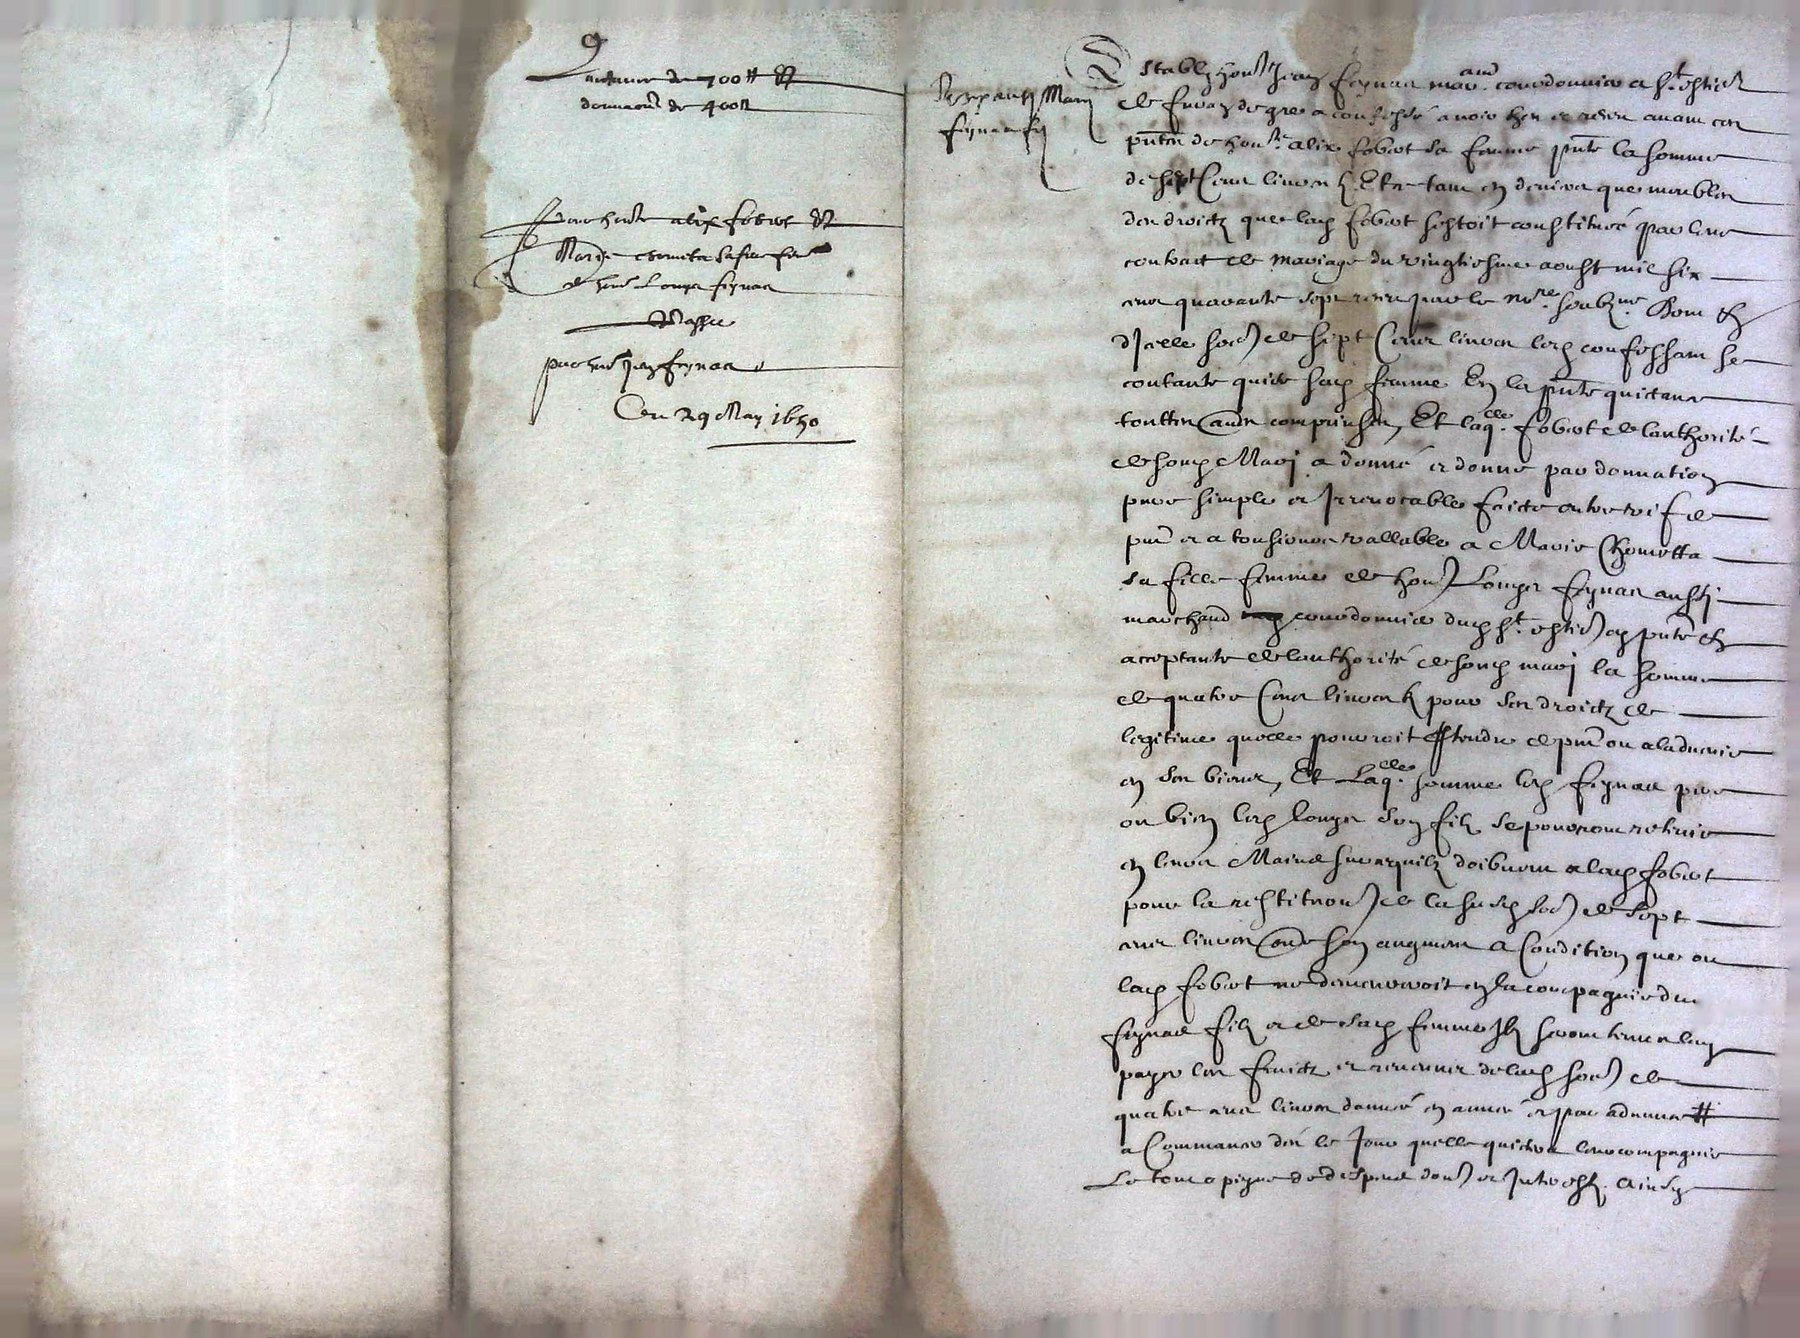 Quittance de 700 ₶ Et
donnaon de 400 ₶
Pour honte alix fobert Et
Marie chometa sa fille fe
de hon Louys feynas
Passee
par hon Jean feynas
Ce 29 May 1650
Jean feynas Mary
feynas
Estably hon Jean feynas march cordonnier a St estiene
de furan de gre a confessé avoir heu et receu avant ces
pntes de honte alix fobert sa femme pnte la somme
de sept Cens livres Et ce tant en deniers que meubles
des droictz que lad fobert sestoit constitueé par leur
contract de mariage du vingtiesme aoust mil six
cens quarante sept receu par le nore soubzne Dont &
dIcelle some de sept Cens livres led confessant se
contante quite sad femme En la pnte quictance
touttes aues comprinses, Et laqlle fobert de lauthorité
de sond Mary a donné et donne par donnation
pure simple et Irrevocable faicte entre vifs de
pnt et a tousiours vallable a Marie Chometta
sa fille femme de hon Louys feynas aussi
marchand cordonnier dud St estiene cy pnte &
acceptante de lauthorité de sond mary la somme
de quatre Cens livres pour ses droictz de
legitime quelle pourroit pretendre de pnt ou a ladvenir
en ses biens, Et Laqlle somme led feynas pere
ou bien led louys son filz se pourront retenir
en leurs Mains sur ce quilz doibvent a lad fobert
pour la restituon de la susd some de sept
cens livres avec son augment a Condition que ou
lad fobert ne demeureroit en la compagnie du
feynas filz et de sad femme Ilz seront tenus luy
payer les fruictz et revenus de lad some de
quatre cens livres donneé en anneé et par advance
a Commancer dés le Jour quelle quictera leur compagnie
Le tout a peyne de despens dom et Interestz. Ainsy